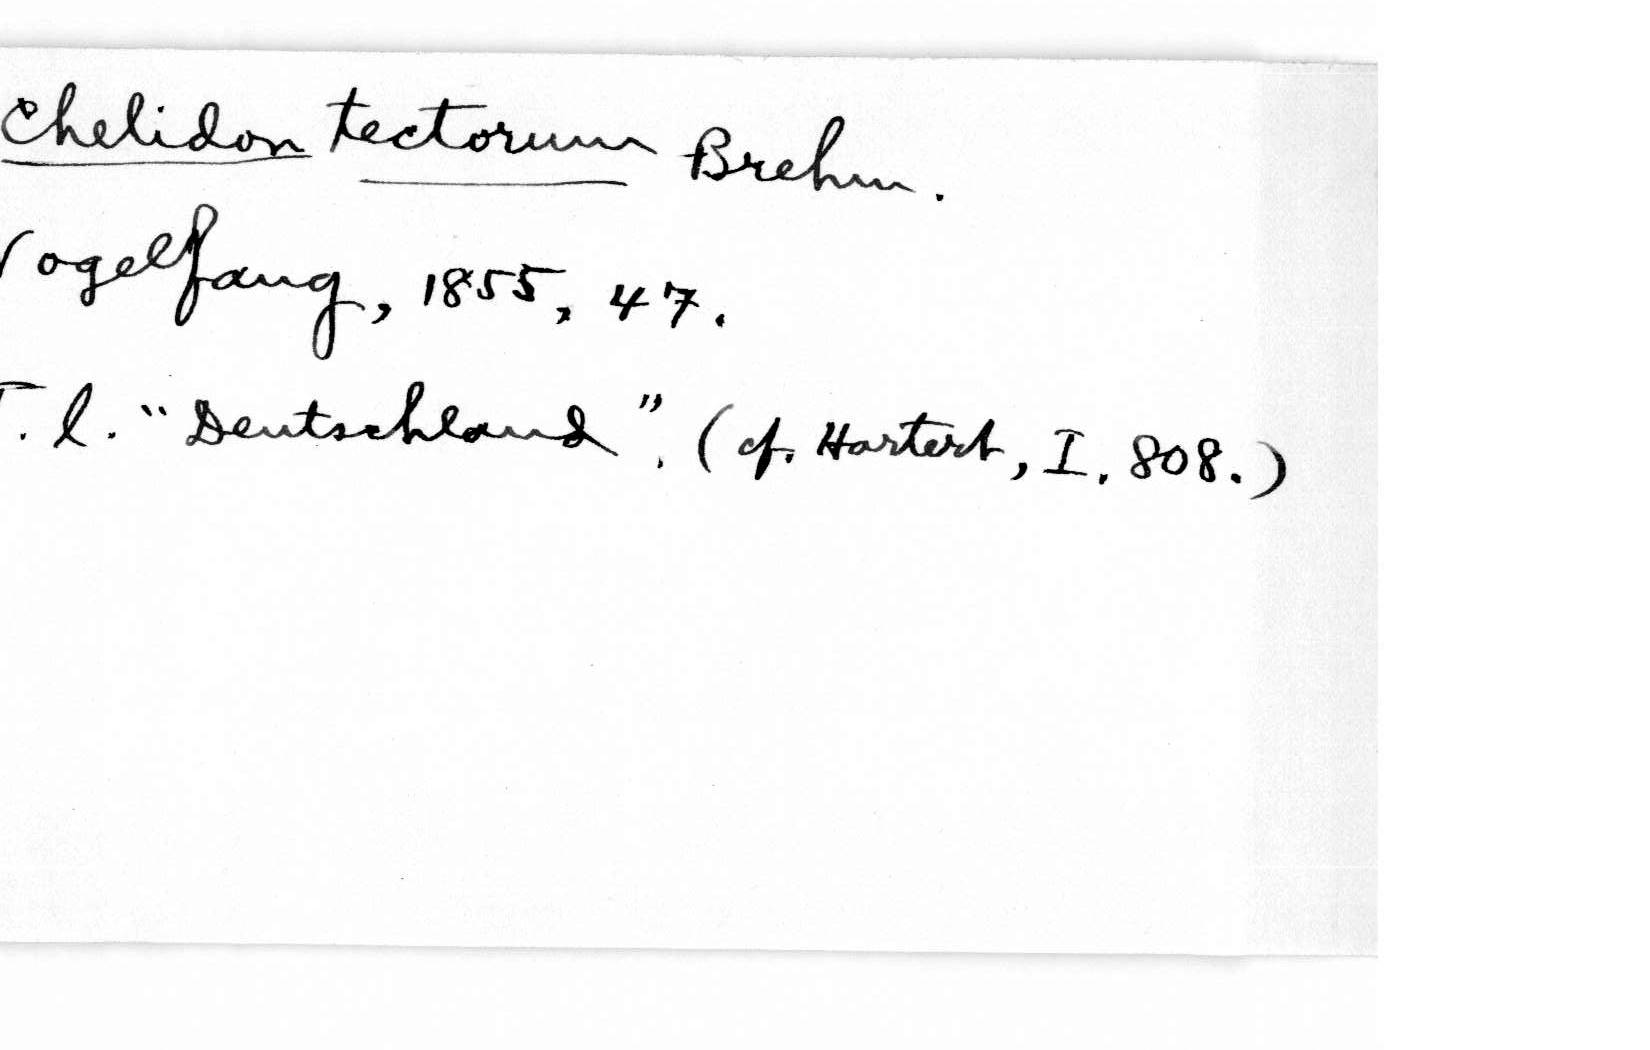 Chelidon tectorum Brehm.
Vogelfang, 1855, 47.
T. l. "Deutschland". (cf. Hartert, I, 808.)